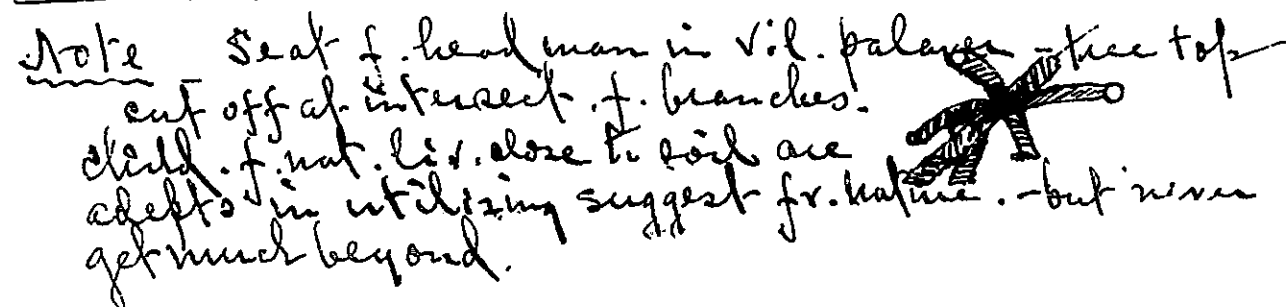 Note - Seat f. head man in Vil. palaver - tree top
cut off at intersect. f. branches.
child. f. nat. liv. close to soil are
adepts in utilizing suggest fr. nature. - but never
get much beyond.